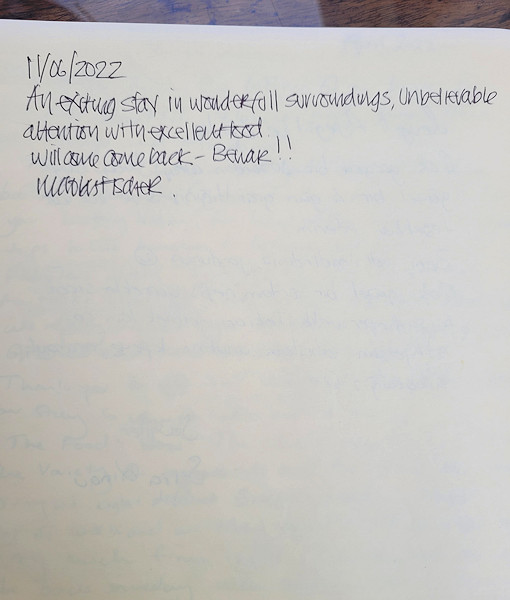 11/06/2022
An exiting stay in wonderfull surroundings, Unbelievable
attention with excellent food
will come come back - Beware!!